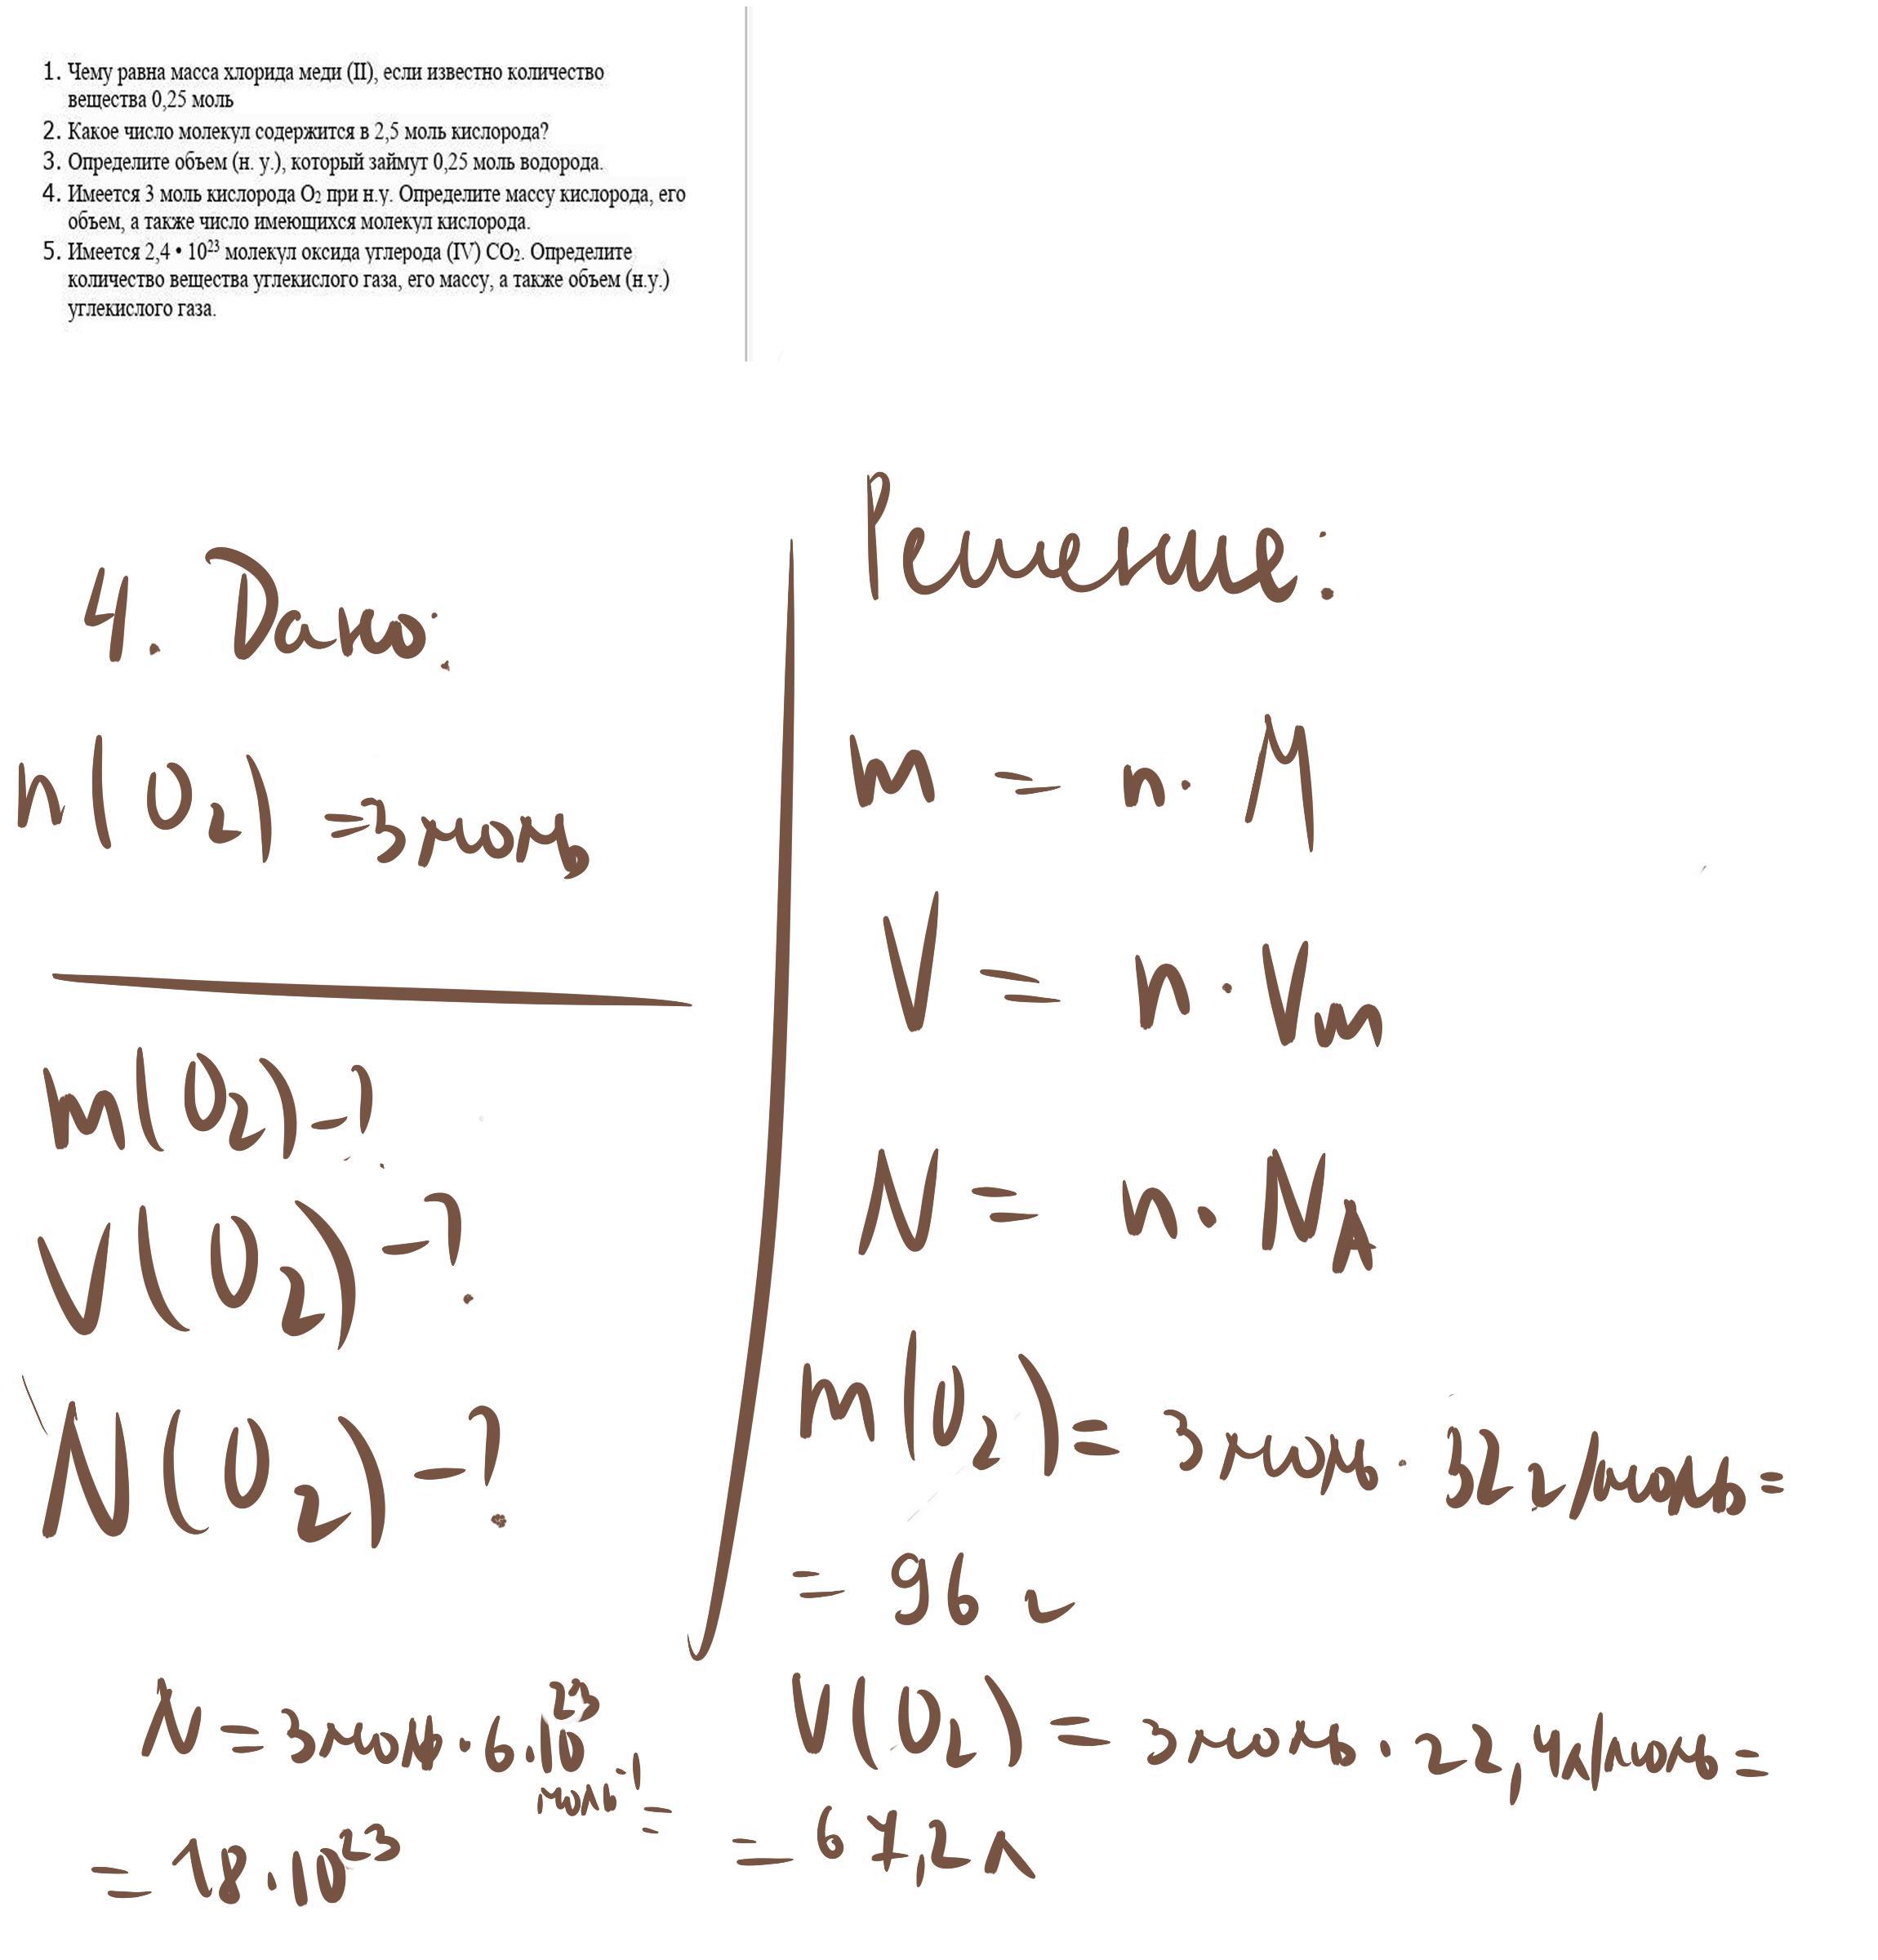 1. Чему равна масса хлорида меди (II), если известно количество
вещества 0,25 моль
2. Какое число молекул содержится в 2,5 моль кислорода?
3. Определите объем (н. у.), который займут 0,25 моль водорода.
4. Имеется 3 моль кислорода O₂ при н.у. Определите массу кислорода, его
объем, а также число имеющихся молекул кислорода.
5. Имеется 2,4 • 10²³ молекул оксида углерода (IV) CO₂. Определите
количество вещества углекислого газа, его массу, а также объем (н.у.)
углекислого газа.
4. Дано:
n(O₂) = 3 моль
m(O₂) - ?
V(O₂) - ?
N(O₂) - ?
Решение:
m = n · M
V = n · Vm
N = n · N_A
m(O₂) = 3 моль · 32 г/моль =
= 96 г
V(O₂) = 3 моль · 22,4 л/моль =
= 67,2 л
N = 3 моль · 6 · 10²³
моль⁻¹ =
= 18 · 10²³